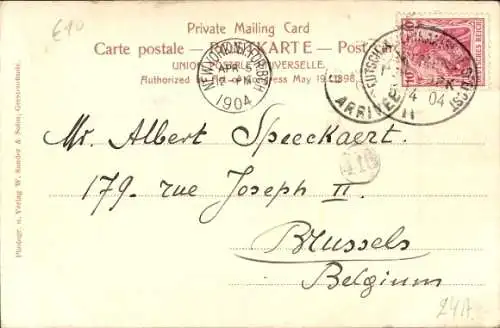 Private Mailing Card
Carte postale — POSTKARTE — Post
UNION POSTALE UNIVERSELLE.
Authorized by Act of Congress May 19, 1898.
APR 5
2 PM
1904
ARRIVED
DEUTSCHES REICH
10
04
Mr. Albert Speeckaert.
179. rue Joseph II.
Brussels
Belgium
Photogr. u. Verlag W. Sander & Sohn, Geestemünde.
24A